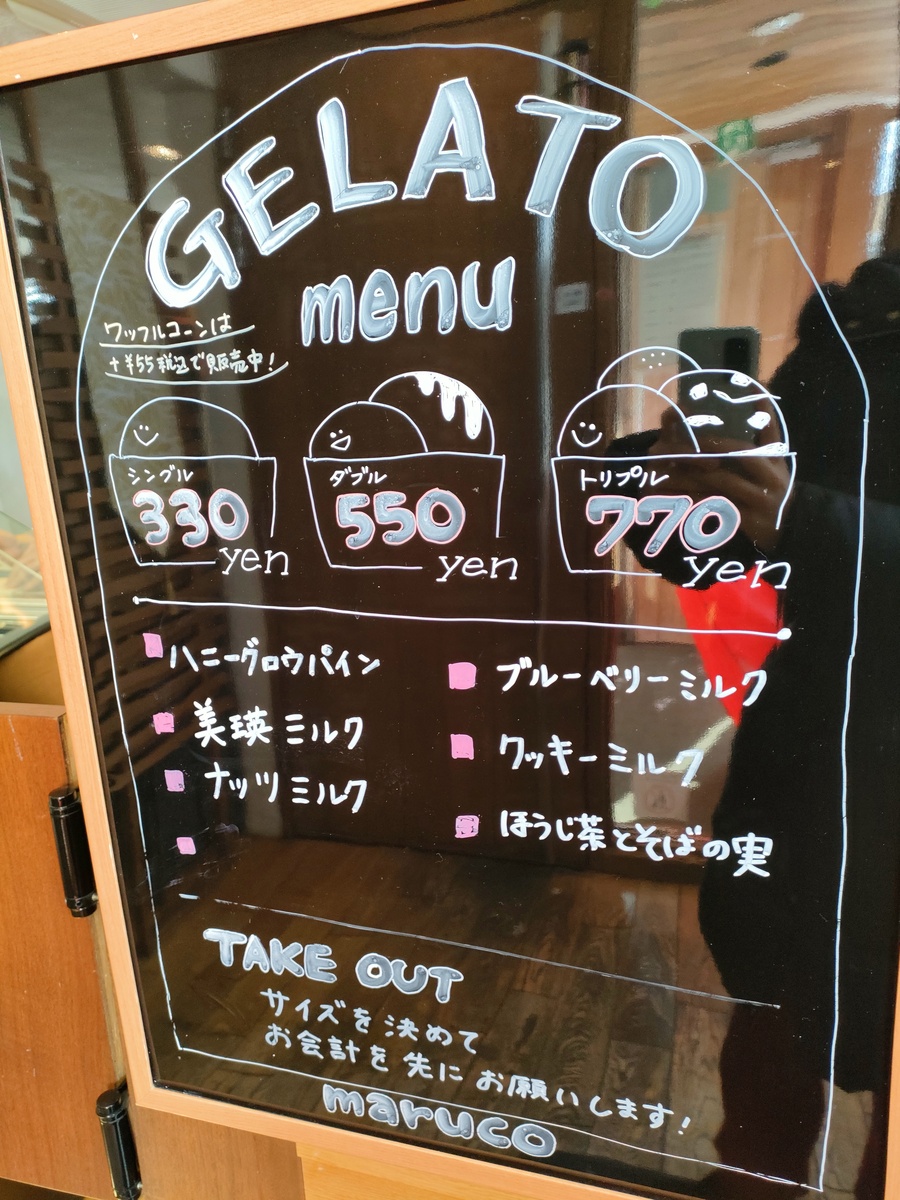 GELATO
menu
ワッフルコーンは
+¥55税込で販売中!
シングル
330
yen
ダブル
550
yen
トリプル
770
yen
ハニーグロウパイン
美瑛ミルク
ナッツミルク
ブルーベリーミルク
クッキーミルク
ほうじ茶とそばの実
TAKE OUT
サイズを決めて
お会計を先にお願いします!
maruco